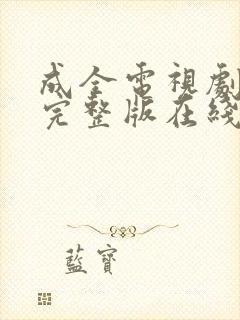 成全電視劇
完整版在綫
藍寶